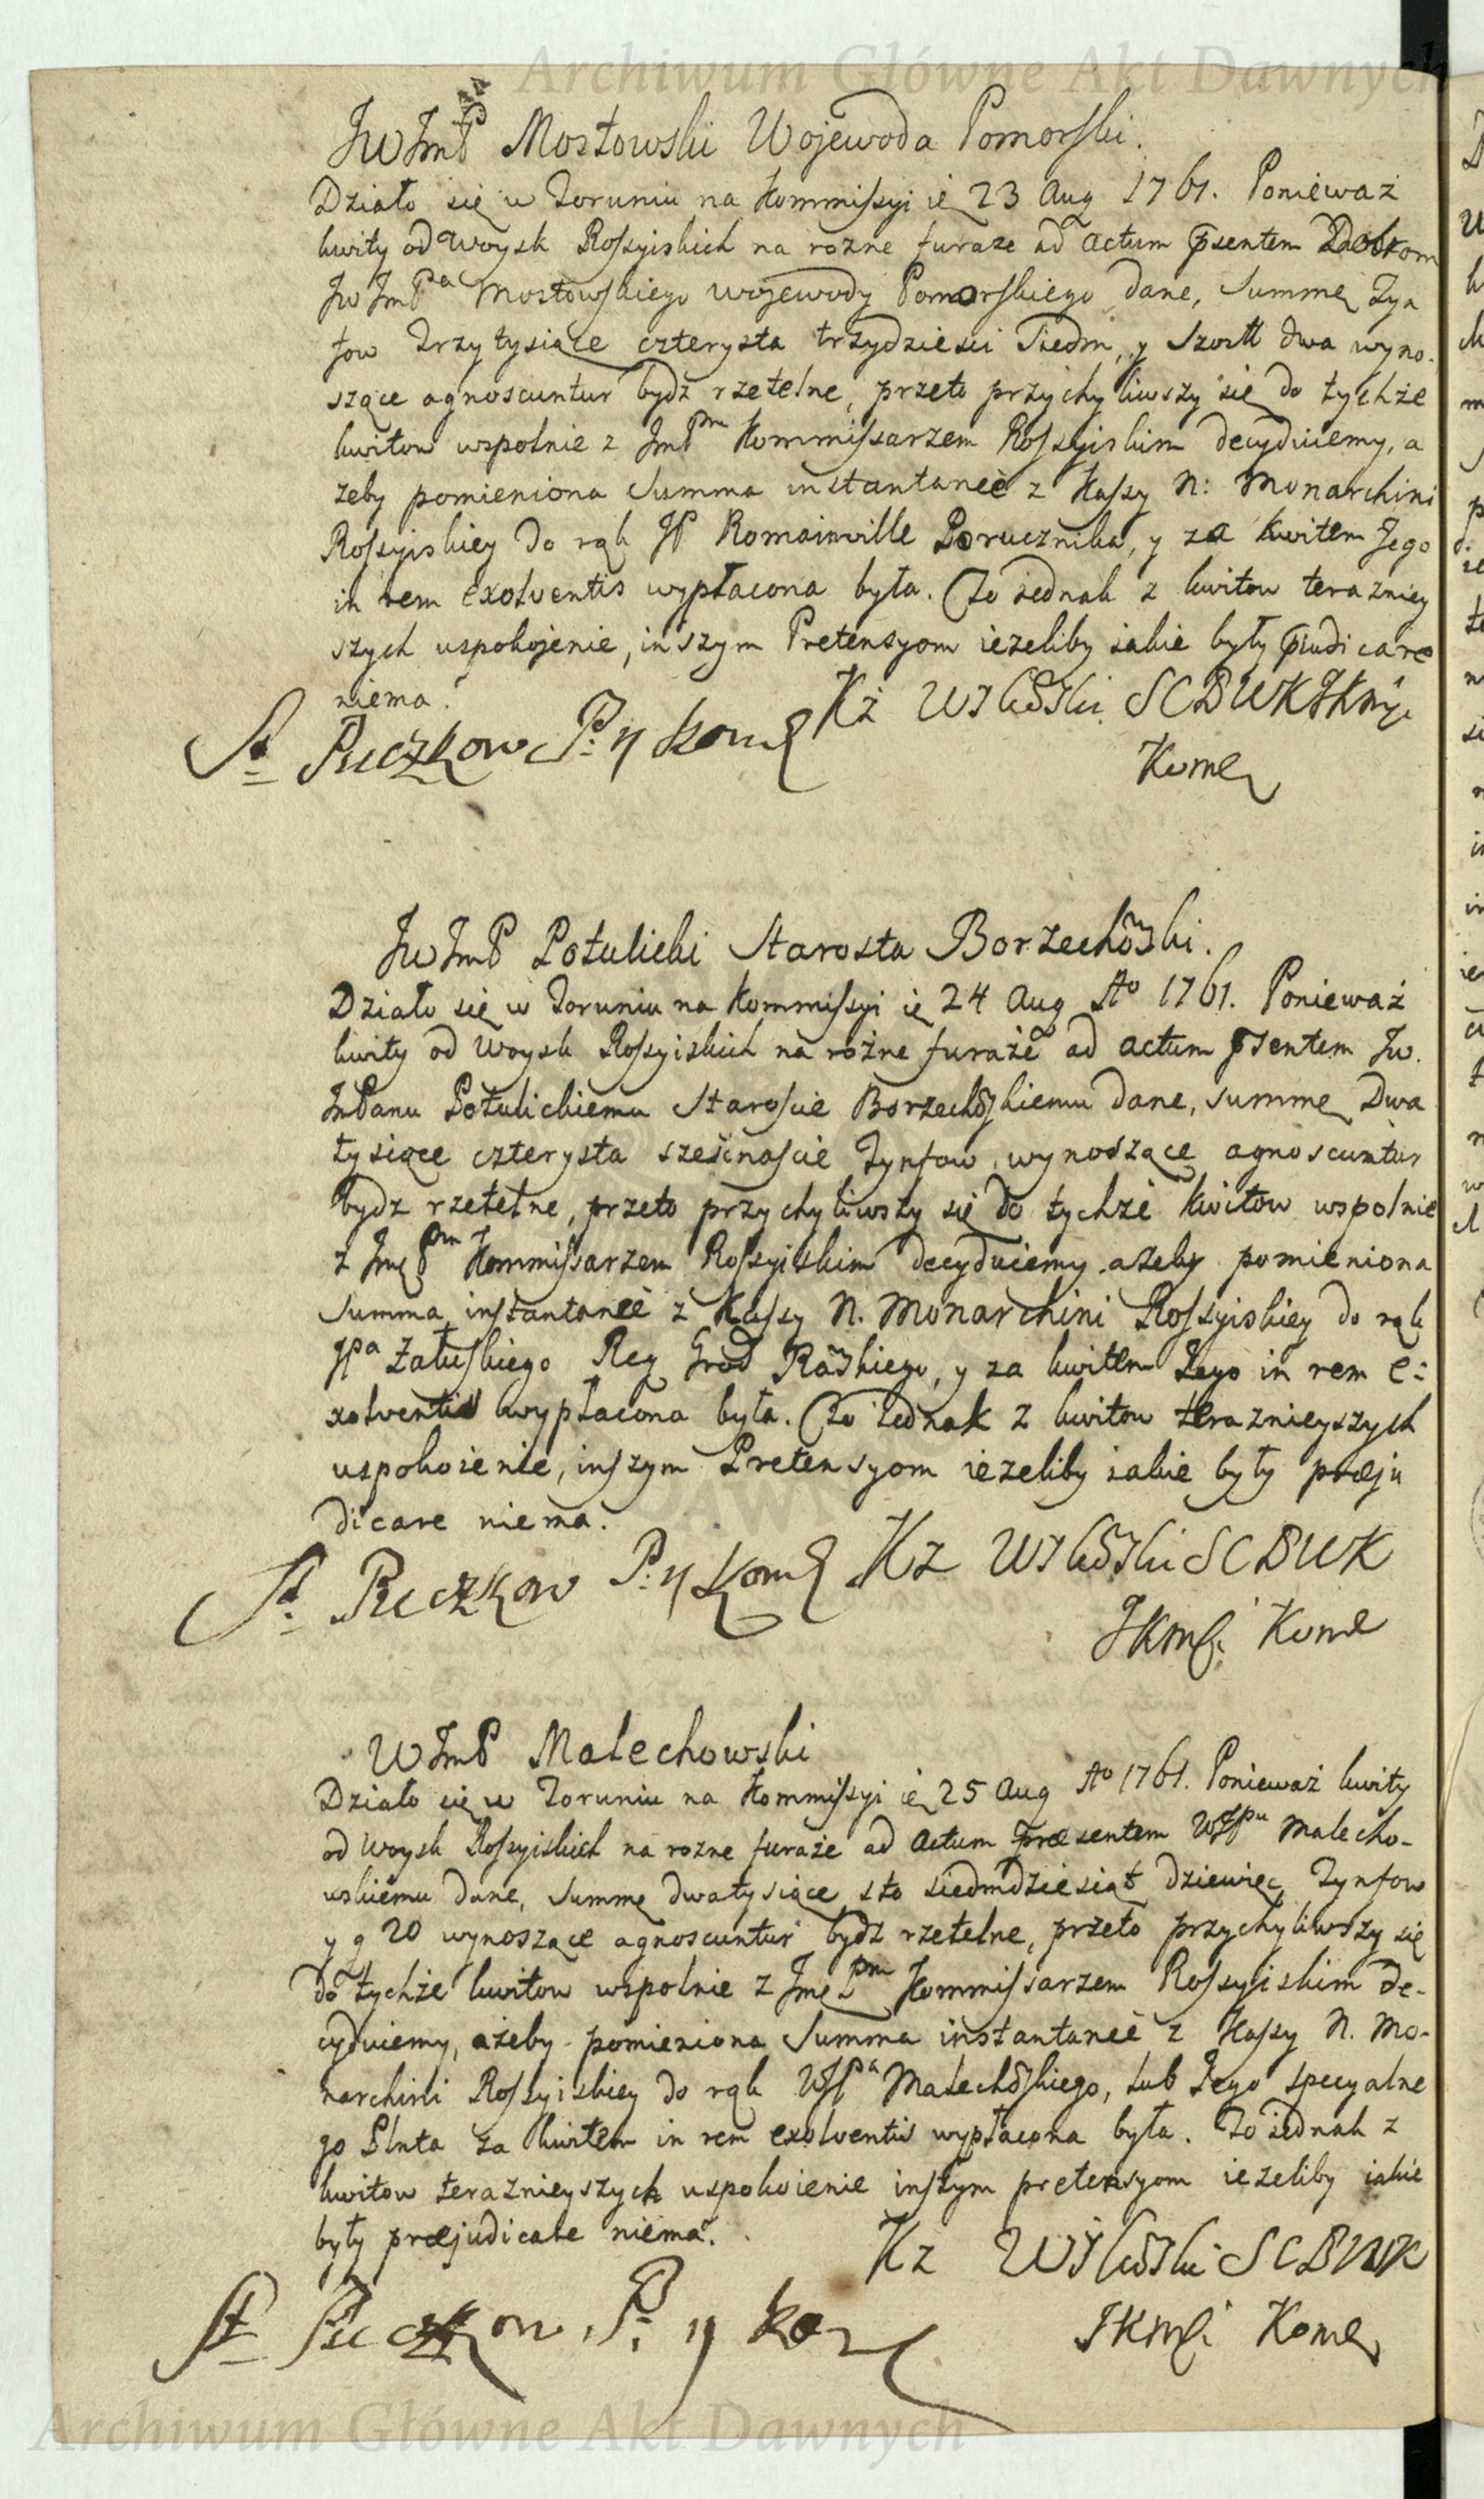 Archiwum Główne Akt Dawnych
JWJmP Mostowski Wojewoda Pomorski.
Działo się w Toruniu na Kommissyi ię 23 Aug 1761. Ponieważ
kwity od Woysk Rossyiskich na rozne furaze ad actum psentem Dobrom
Jw JmPa Mostowskiego wojewody Pomorskiego dane, Summę Tyn
fow Trzy tysiące czterysta trzydziesci Siedm, y Szost dwa wyno-
szące agnoscuntur bydz rzetelne, przeto przychyliwszy się do tychże
kwitow wspolnie z JmPm Kommissarzem Rossyiskim decyduiemy, a
zeby pomieniona Summa instantaneè z Kassy N: Monarchini
Rossyiskiey do rąk JP Romainville Porucznika, y za kwitem Jego
in rem exolventis wypłacona była. To iednak z kwitow terazniey
szych uspokojenie, inszym Pretensyom iezeliby iakie były pjudicare
niema.
Puczkow P: y kom
Kż SCDWK JKmści
Kome
JWJmP Potulicki Starosta Borzechowski.
Działo się w Toruniu na Kommissyi ię 24 Aug Ao 1761. Ponieważ
kwity od Woysk Rossyiskich na rożne furażè ad actum psentem Jw.
JmPanu Potulickiemu Staroscie Borzechoskiemu dane, summę Dwa
tysiące czterysta szesnascie Tynfow, wynoszące agnoscuntur
bydz rzetelne, przeto przychyliwszy się do tychże kwitow wspolnie
z JmęPm Kommissarzem Rossyiskim decyduiemy ażeby pomieniona
Summa instantaneè z Kassy N. Monarchini Rossyiskiey do rąk
JPa Załuskiego Reg Grod Raskiego, y za kwitem Jego in rem e=
xolventis wypłacona była. To iednak z kwitow teraznieyszych
uspokoienie, inszym Pretensyom iezeliby iakie były præju
dicare niema.
Puczkow P: y Kom
Kz SCDWK
JKmści Kome
WJmP Malechowski
Działo się w Toruniu na Kommissyi ię 25 Aug Ao 1761. Ponieważ kwity
od Woysk Rossyiskich na rozne furaże ad actum præsentem WJPu Malecho-
wskiemu dane, summę dwatysiące sto siedmdziesiąt dziewięc Tynfow
y g 20 wynoszące agnoscuntur bydz rzetelne, przeto przychyliwszy się
do tychże kwitow wspolnie z JmęPm Kommissarzem Rossyiskim de-
cyduiemy, ażeby pomieniona Summa instantaneè z Kassy N. Mo-
narchini Rossyiskiey do rąk WJPa Malechoskiego, lub Jego specyalne
go Plnta za kwitem in rem exolventis wypłacona była. To iednak z
kwitow teraznieyszych uspokoienie inszym pretensyom iezeliby iakie
były præjudicare niema.
Puczkow. P: y kom
Kz SCDWK
JKmści Kome
Archiwum Główne Akt Dawnych